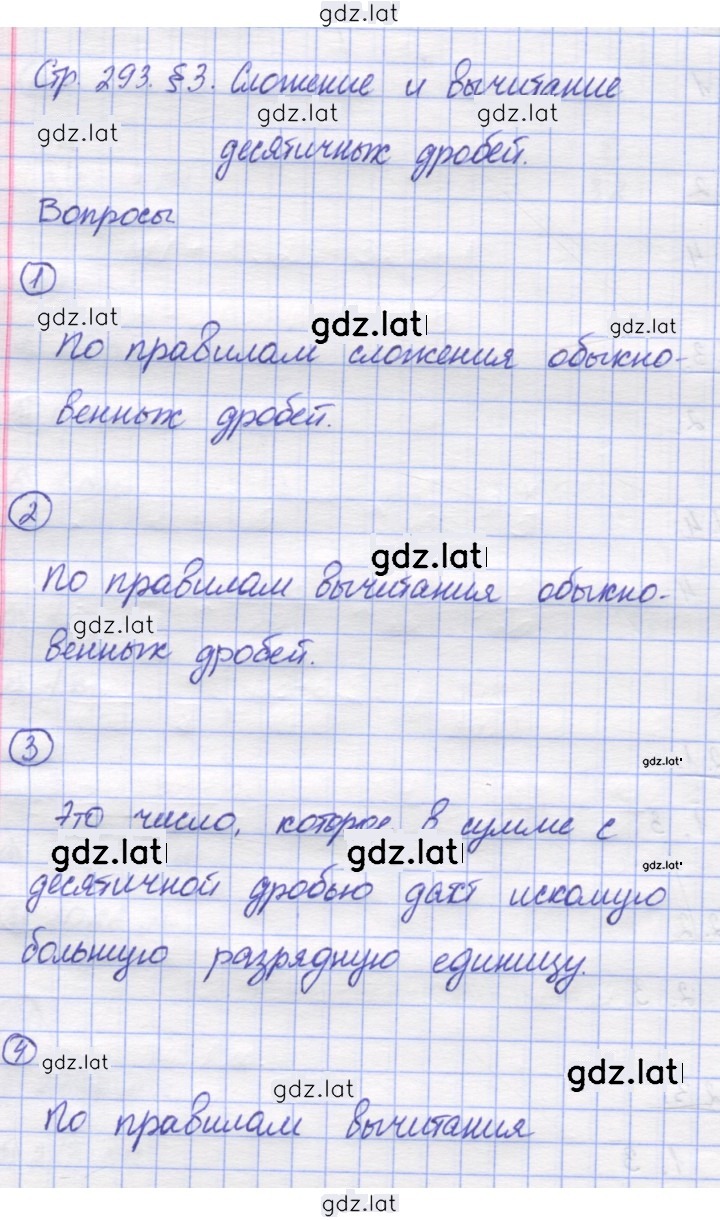 gdz.lat
Стр. 293. §3. Сложение и вычитание
gdz.lat gdz.lat gdz.lat
десятичных дробей.
Вопросы
1
gdz.lat gdz.lat gdz.lat
По правилам сложения обыкно-
венных дробей.
2
gdz.lat
По правилам вычитания обыкно-
gdz.lat
венных дробей.
3
gdz.lat
Это число, которое в сумме с
gdz.lat gdz.lat gdz.lat
десятичной дробью даёт искомую
большую разрядную единицу.
4
gdz.lat gdz.lat gdz.lat
По правилам вычитания
gdz.lat